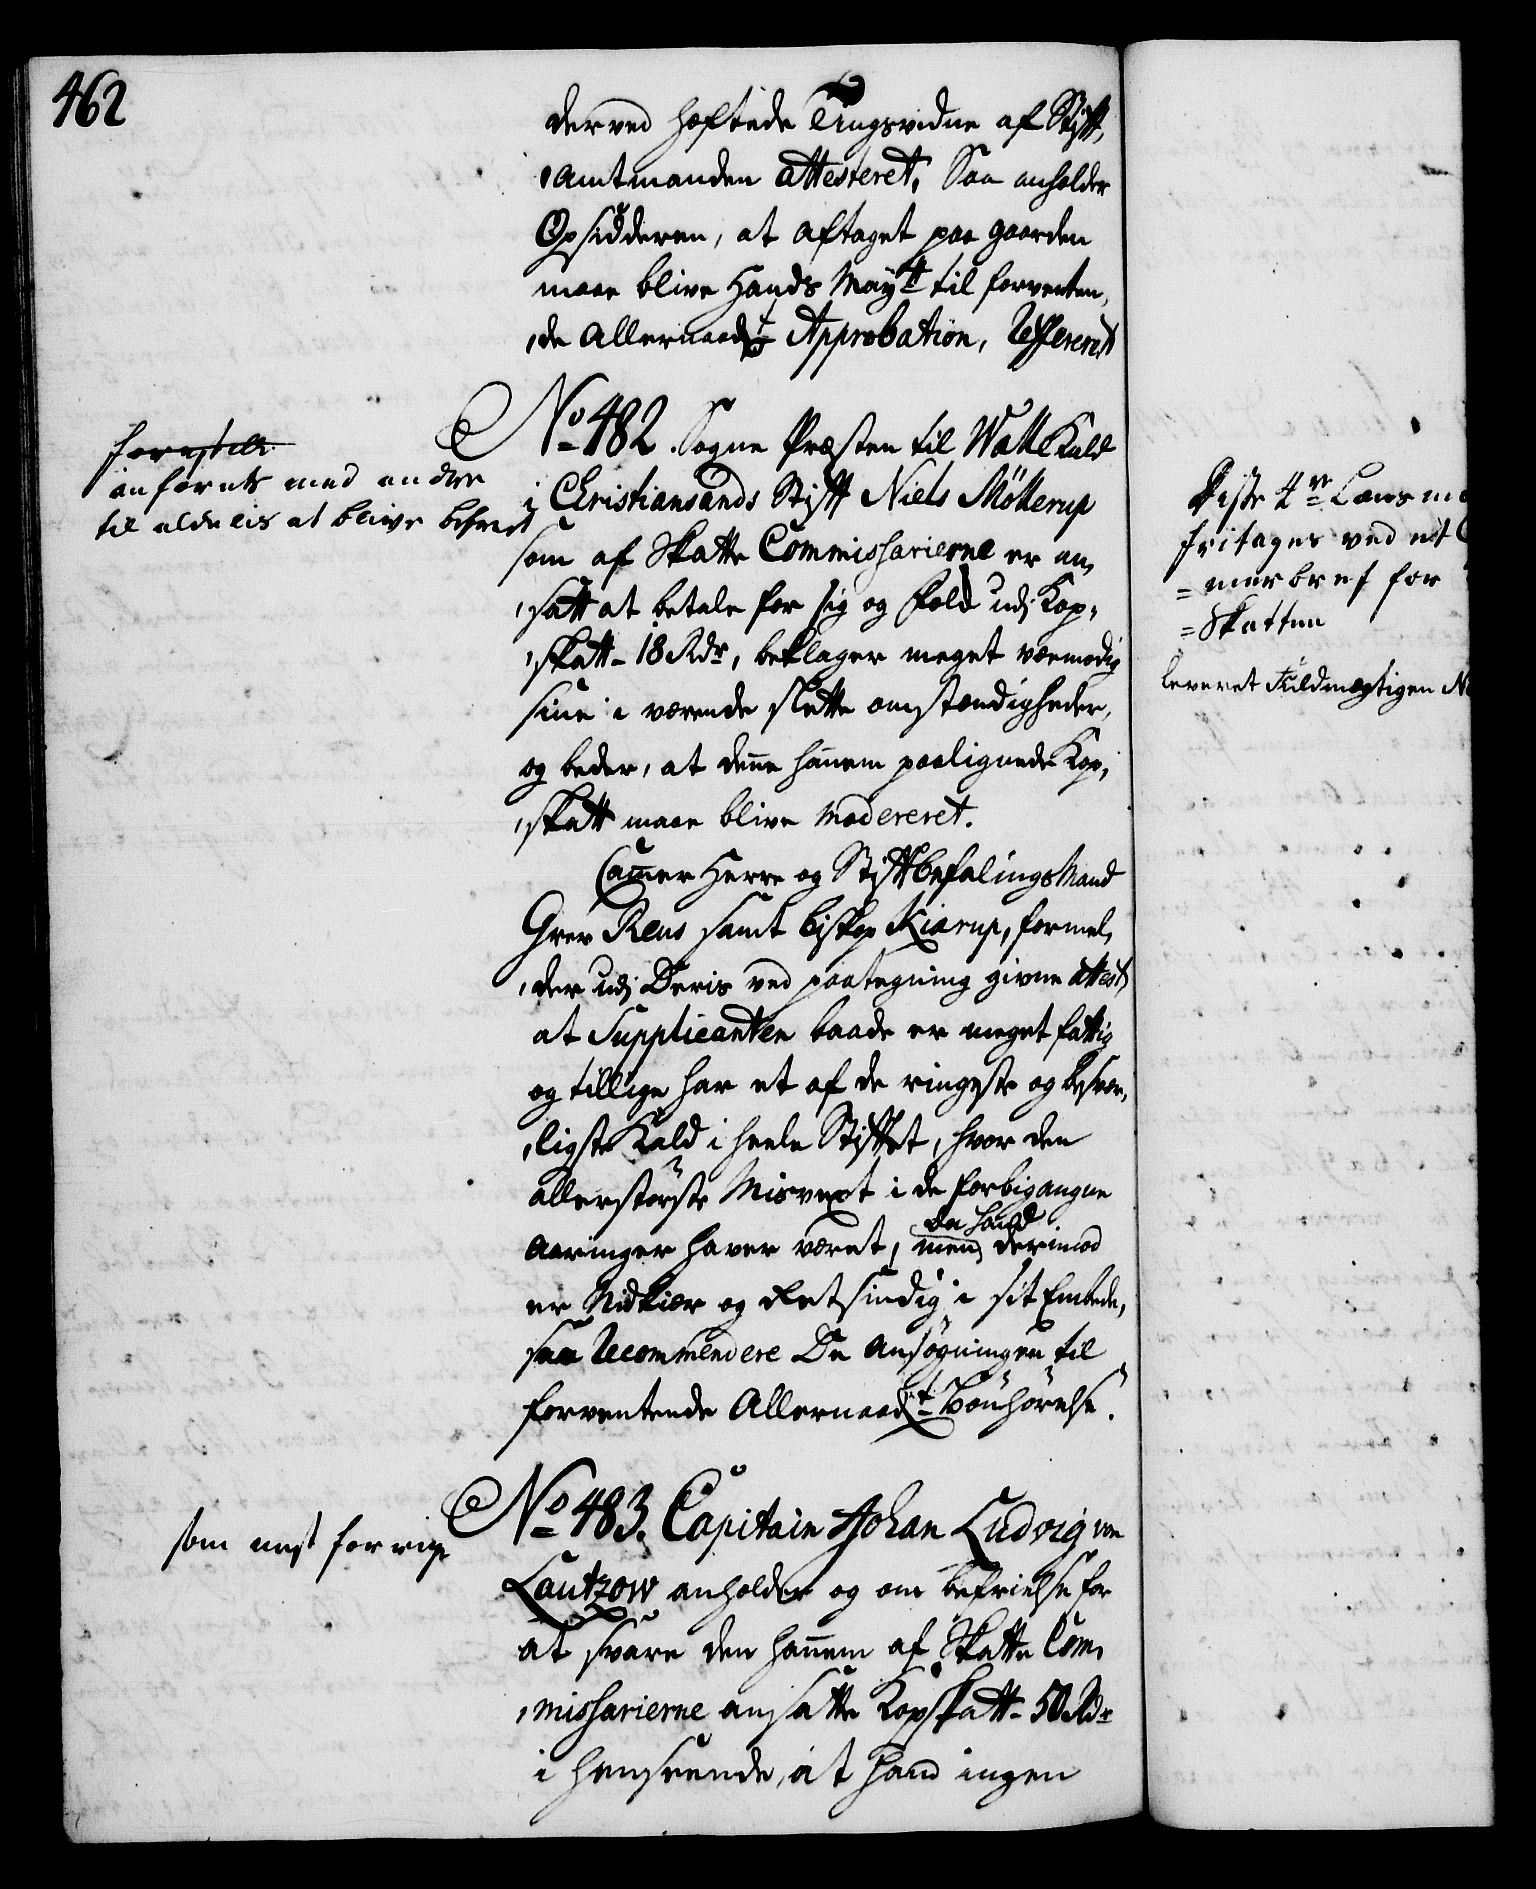 462
derved hæftede Tingsvidne af Stift,
,amtmanden attesteret, Saa anholder
Opsidderen, at aftaget paa gaarden
maae blive Hands Mayt til forventen,
,de Allernaadst Approbation, Refereret
No 482. Sogne Præsten til Walle Kald
i Christiansands Stift Niels Møllerup
som af Skatte Commissarierne er an,
,satt at betale for sig og Folk udj Kop,
,skatt - 18 Rdr, beklager meget væemodig
sine i værende slette omstændigheder,
og beder, at denne hannem paalignede Kop,
,skatt maae blive modereret.
Camer Herre og Stiftbefalings Mand
Grev Reus samt Biskop Kiærup, formel,
,der udj Deris ved paategning givne attest,
at Supplicanten baade er meget fattig
og tillige har et af de ringeste og besvær,
,ligste Kald i heele Stiftet, hvor den
allerstørste Misvext i de forbigangne
Aaringer haver været, men da hand derimod
er Nidkiær og Retsindig i sit Embede,
saa Recommendere De Ansøgningen til
forventende Allernaadst Bønhørelse.
No 483. Capitain Johan Ludvig von
Lautzow anholder og om befrielse for
at svare den hannem af Skatte Com,
,missarierne ansatte Kopskatt - 50 Rdr
i henseende, at hand ingen
forestill:
anføres med andre
til aldeelis at blive befriet
som nest forrige
Disse 4re
fritages ved et
= merbref for
= Skatten
leveret Fuldmægtigen